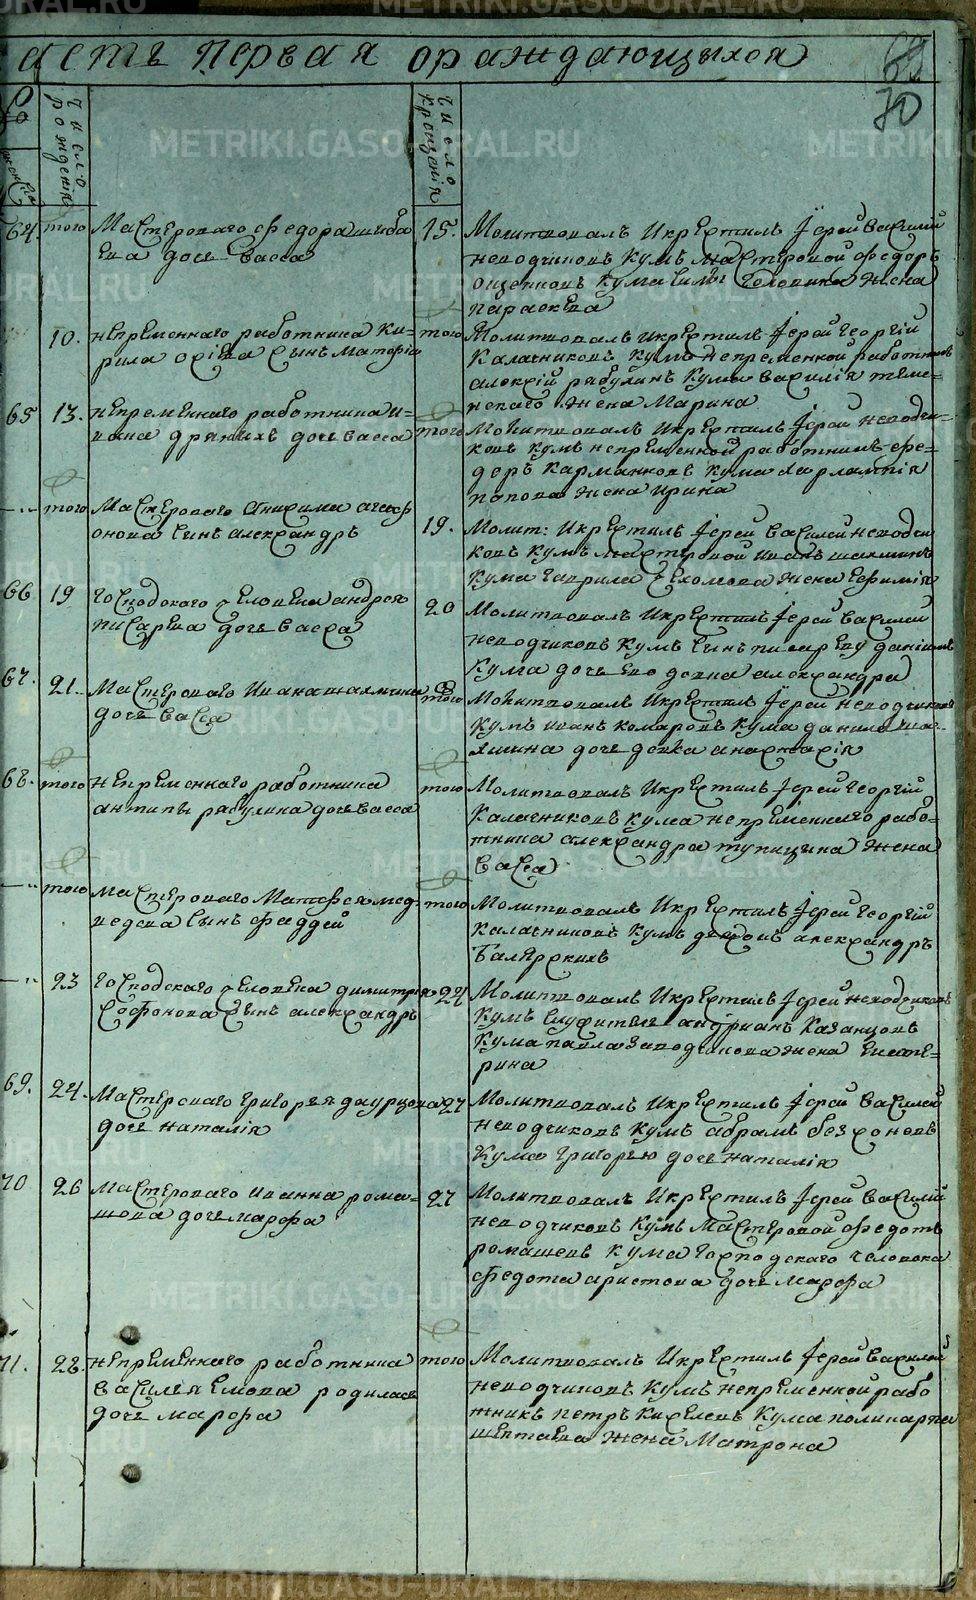 асть первая о раждающихся
70
число рождения
число крещения
64. того Мастероваго Федора
ева дочь васса
15. Молитвовалъ Икрестилъ Iерей Василий
неводчиковъ Кумъ мастеровой Федоръ
Кума Человека Жена
параскева
10. непременнаго работника Ки-
рила сынъ Матфей
того Молитвовалъ Икрестилъ Iерей Георгий
Калачниковъ Кумъ непременной работникъ
алексий рябухинъ Кума Василия
Жена Марина
65 13. непременнаго работника и-
вана дочь васса
того Молитвовалъ Икрестилъ Iерей неводчи-
ковъ кумъ непременной работникъ фе-
доръ Карманковъ Кума Харлампия
попова жена ирина
того Мастероваго Анисима агаф
онова сынъ александръ
19. Молит: Икрестилъ Iерей Василей неводчи-
ковъ Кумъ мастеровой иванъ шахминъ
Кума Гаврила жена Ефимия
66 19 Господского человека андрея
писарева дочь васса
20 Молитвовалъ Икрестилъ Iерей Василей
неводчиковъ Кумъ сынъ писареву
Кума дочь ево девка александра
67. 21. Мастероваго Ивана шахмина
дочь васса
того Молитвовалъ Икрестилъ Iерей неводчиковъ
Кумъ иванъ комаровъ Кума данила ша-
хмина дочь девка анастасiя
68. того непременнаго работника
антипы рябухина дочь васса
того Молитвовалъ Икрестилъ Iерей Георгий
Калачниковъ Кума непременнаго рабо-
тника александра тупицына жена
васса
того мастероваго Матфея мед-
ведева сынъ фаддей
того Молитвовалъ Икрестилъ Iерей Георгий
калачниковъ Кумъ александръ
Балярскихъ
23 Господскаго человека димитрия
Софонова сынъ александръ
24 Молитвовалъ Икрестилъ Iерей неводчиковъ
Кумъ служитель андрианъ Казанцовъ
Кума павла Заводчикова жена Екате-
рина
69. 24. Мастерскаго григорья даурцова
дочь наталiя
27 Молитвовалъ Икрестилъ Iерей Василей
неводчиковъ Кумъ абрамъ
Кума григорью дочь наталiя
70 26 мастероваго иванна рома-
шова дочь марфа
27 Молитвовалъ Икрестилъ Iерей Василий
неводчиковъ Кумъ мастеровой федотъ
ромашевъ кума господскаго человека
федота аристова дочь марфа
71. 28. непременнаго работника
василья родилась
дочь марфа
того Молитвовалъ Икрестилъ Iерей Василей
неводчиковъ Кумъ непременной рабо
тникъ петръ Киселевъ Кума поликарпа
шептаева жена Матрона
METRIKI.GASO-URAL.RU